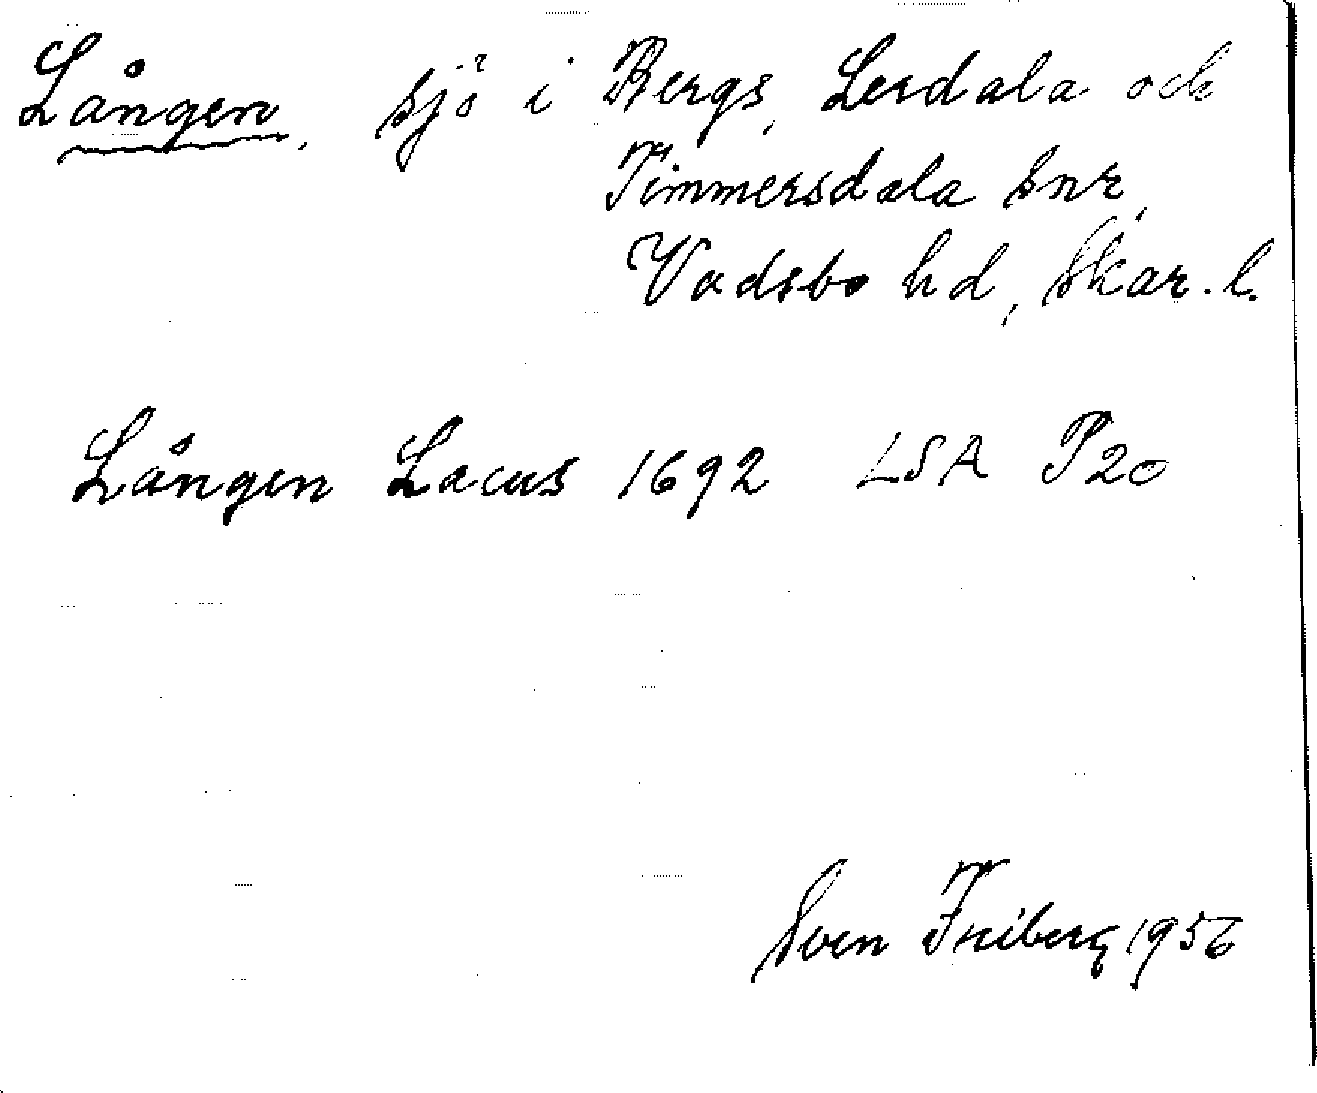 Lången, sjö i Bergs, Lerdala och
Timmersdala snr,
Vadsbo hd, Skar. l.
Lången Lacus 1692 LSA P20
Sven Friberg 1956